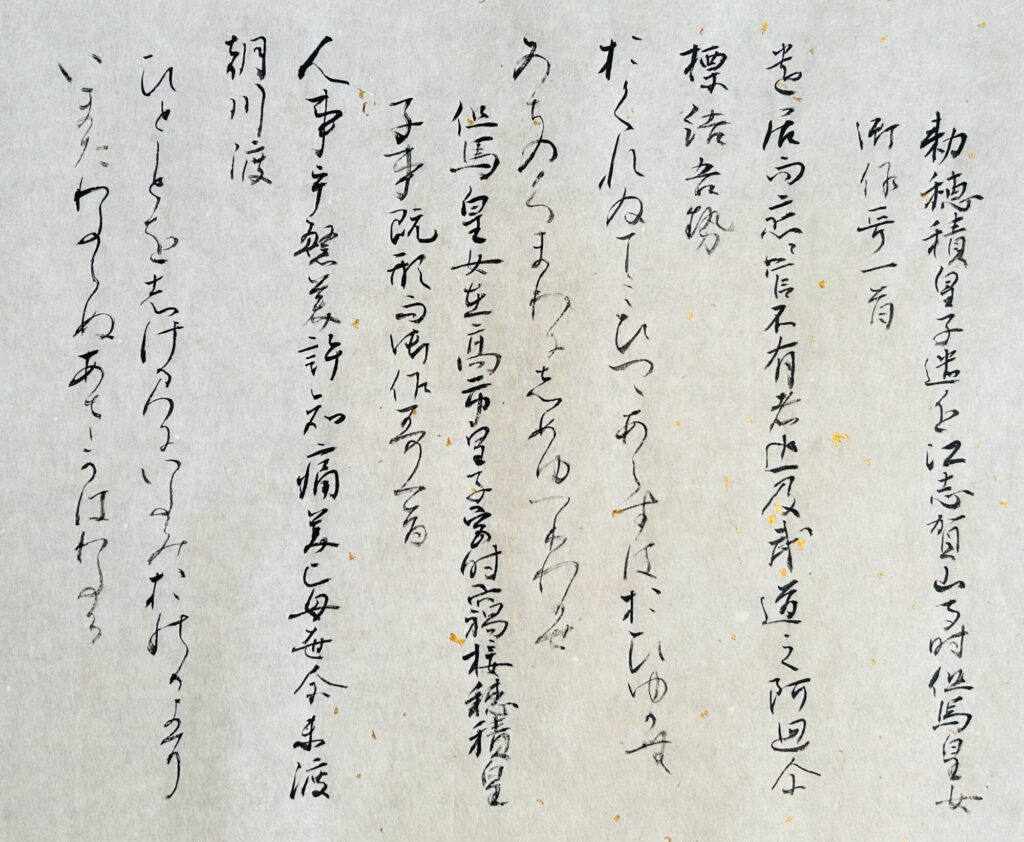 勅穂積皇子遣近江志賀山寺時但馬皇女
御作哥一首
遺居而戀管不有者追及武道之阿廻尓
標結吾勢
おくれゐてこひつゝあらすはおひゆかむ
みちのくまわにしめゆへわかせ
但馬皇女在高市皇子宮時竊接穂積皇
子事既形而御作哥一首
人事乎繁美許知痛美己母世尓未渡
朝川渡
ひとことをしけみこちいたみおのかよに
いまたわたらぬあさかはわたる